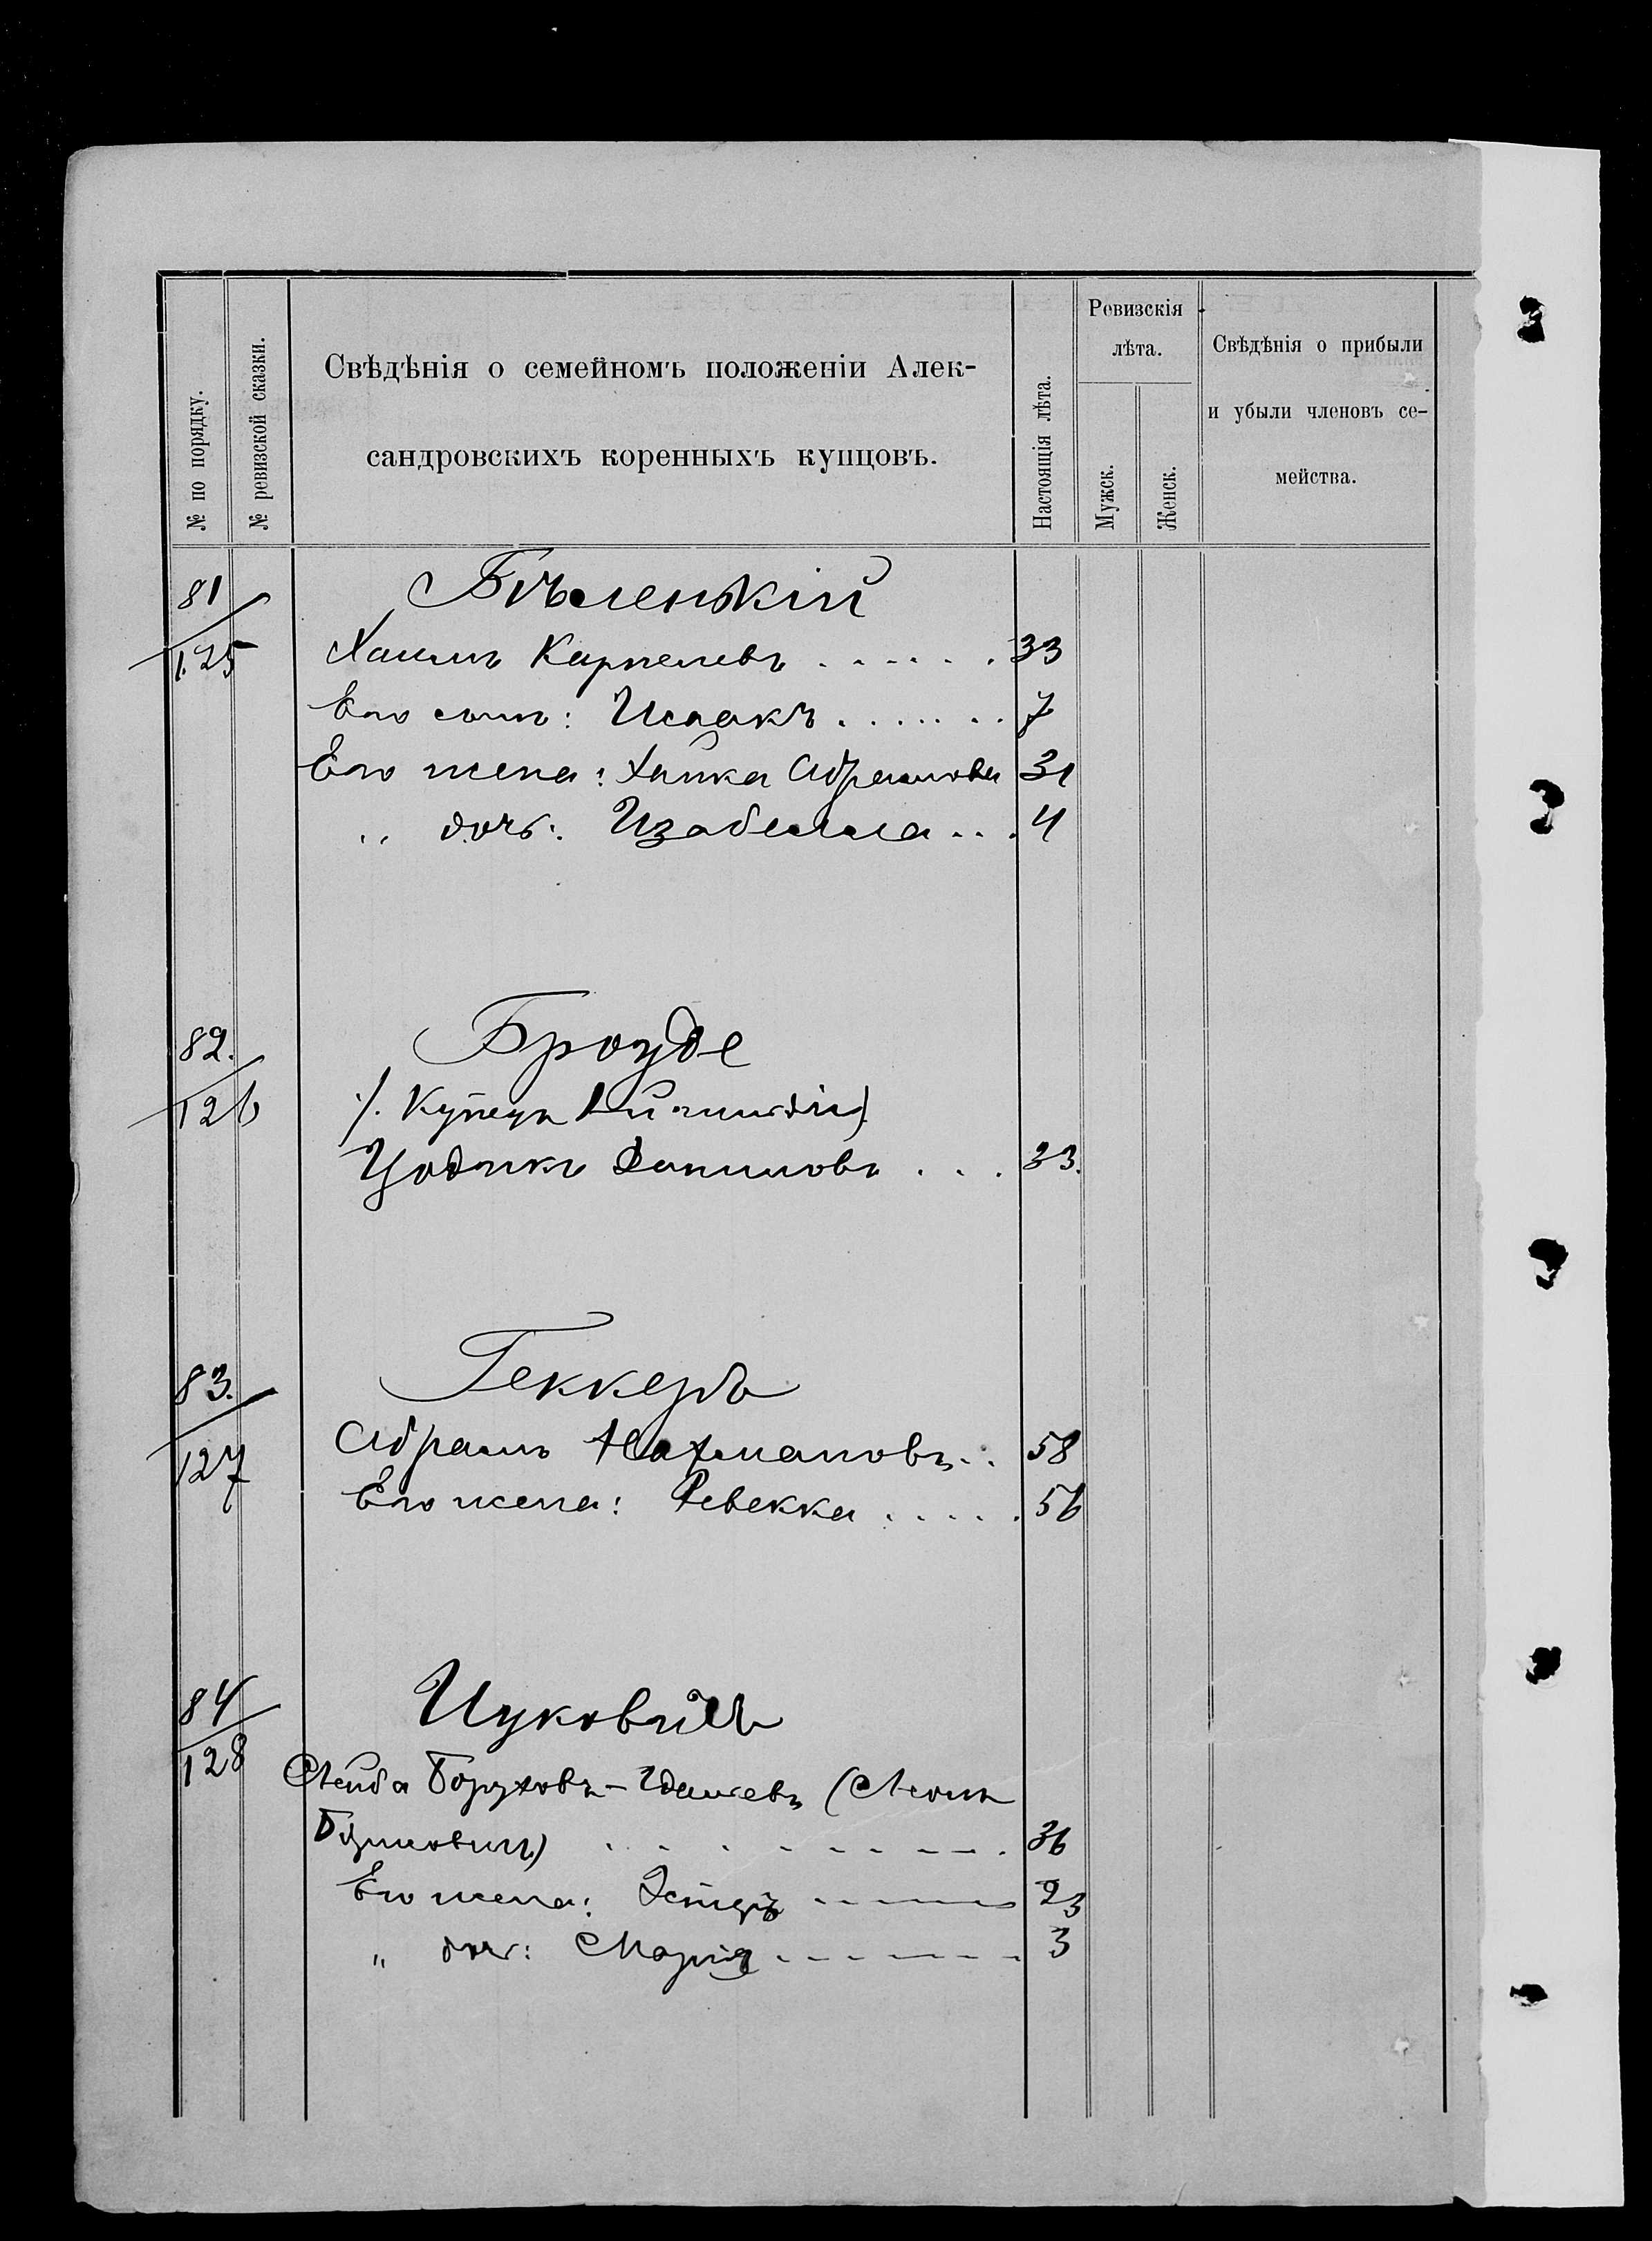 № по порядку.
№ ревизской сказки.
Свѣдѣнія о семейномъ положеніи Алек-
сандровскихъ коренныхъ купцовъ.
Настоящія лѣта.
Ревизскія
лѣта.
Мужск.
Женск.
Свѣдѣнія о прибыли
и убыли членовъ се-
мейства.
81
125
Бѣленькій
Хаимъ Карпелевъ . . . . . . 33
Его сынъ: Исаакъ . . . . . . . 7
Его жена: Хайка Абрамова 31
„ дочь: Изабелла . . . 4
82.
126
Броуде
Купецъ
Цодикъ Даниловъ . . . 33.
83.
127
Геккеръ
Абрамъ Нахмановъ . . 58
Его жена: Ревекка . . . . . 56
84
128
Ицковичъ
Лейба Боруховъ-
36
Его жена: Эстеръ 23
„ дочь: Марія 3